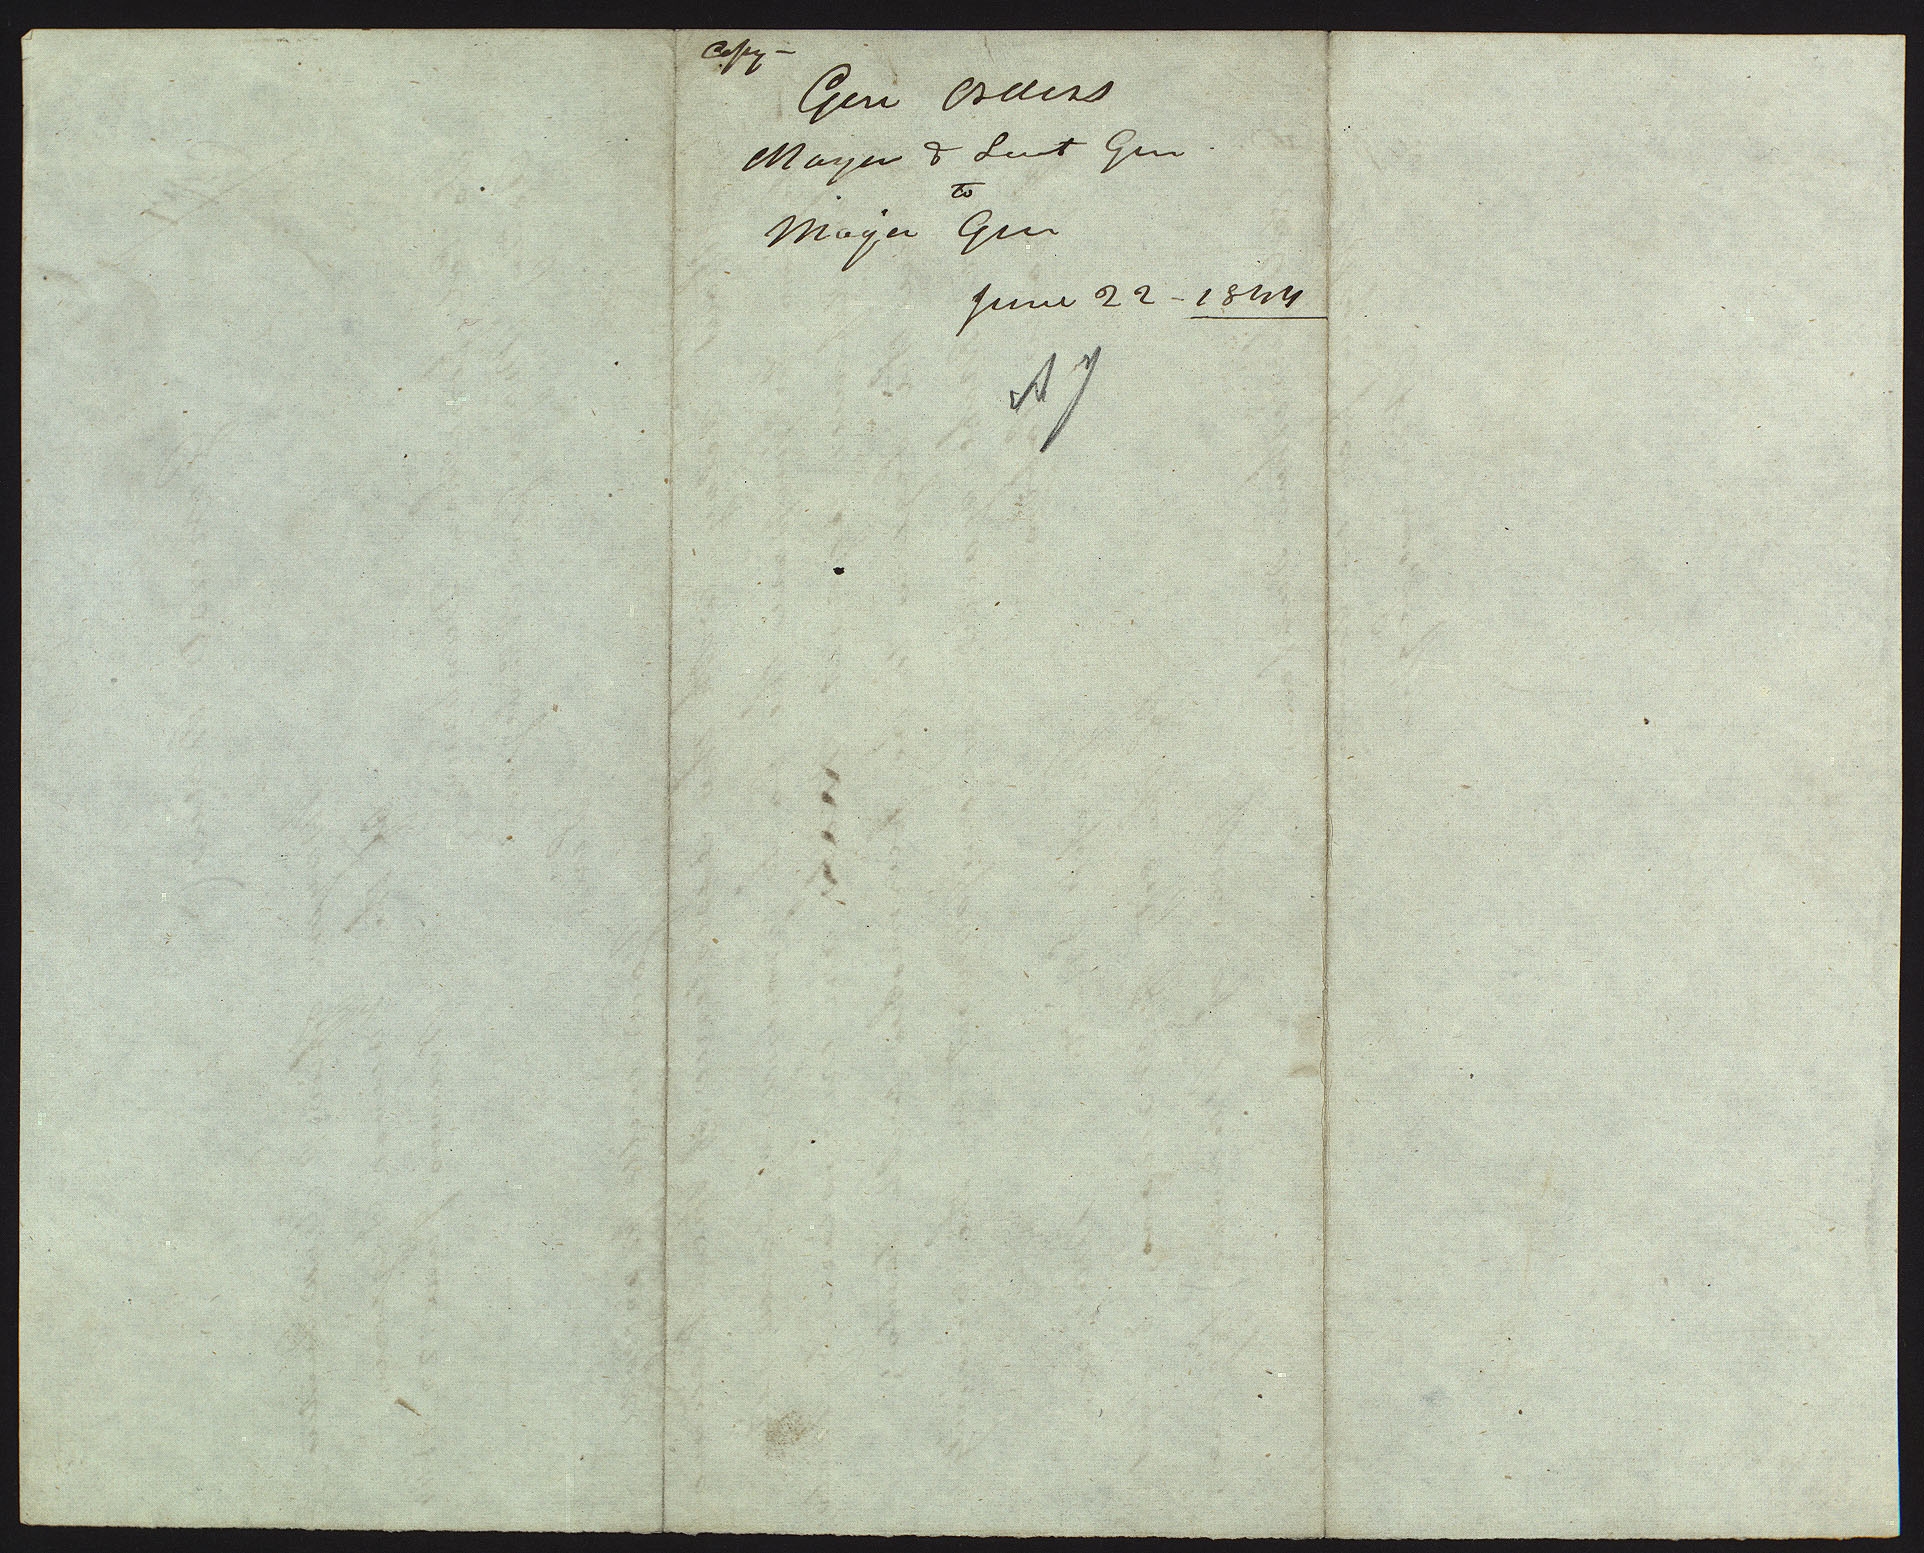 Copy –
Gen Orders
Mayor & Lieut Gen
to
Major Gen
June 22 – 1844